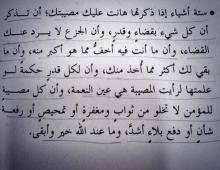 • ستة أشياء إذا ذكرتها هانت عليك مصيبتك؛ أن تذكر
أن كل شيء بقضاء وقدر، وأن الجزع لا يرد عنك
القضاء، وأن ما أنت فيه أخف مما هو أكبر منه، وأن ما
بقي لك أكثر مما أُخذ منك، وأن لكل قدرٍ حكمة لو
علمتها لرأيت المصيبة هي عين النعمة، وأن كل مصيبةٍ
للمؤمن لا تخلو من ثوابٍ ومغفرة أو تمحيصٍ أو رفعة
شأنٍ أو دفع بلاءٍ أشدَّ، وما عند الله خير وأبقى.